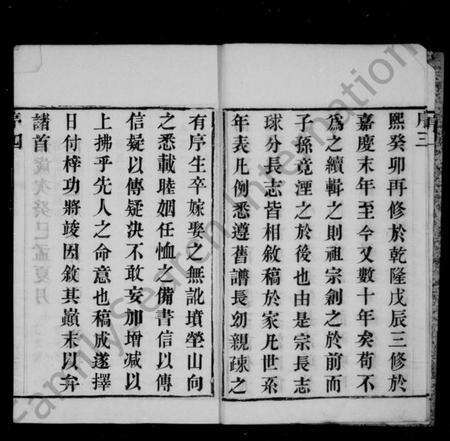 序三
熙癸卯再修於乾隆戊辰三修於
嘉慶末年至今又數十年矣苟不
為之續輯之則祖宗創之於前而
子孫竟湮之於後也由是宗長志
球分長志皆相敘稿於家凡世系
年表凡例悉遵舊譜長幼親疎之
有序生卒嫁娶之無訛墳塋山向
之悉載睦婣任恤之備書信以傳
信疑以傳疑決不敢妄加增減以
上拂乎先人之命意也稿成遂擇
日付梓功將竣因敘其巔末以弁
諸首
序四
歲次癸巳孟夏月
FamilySearch International